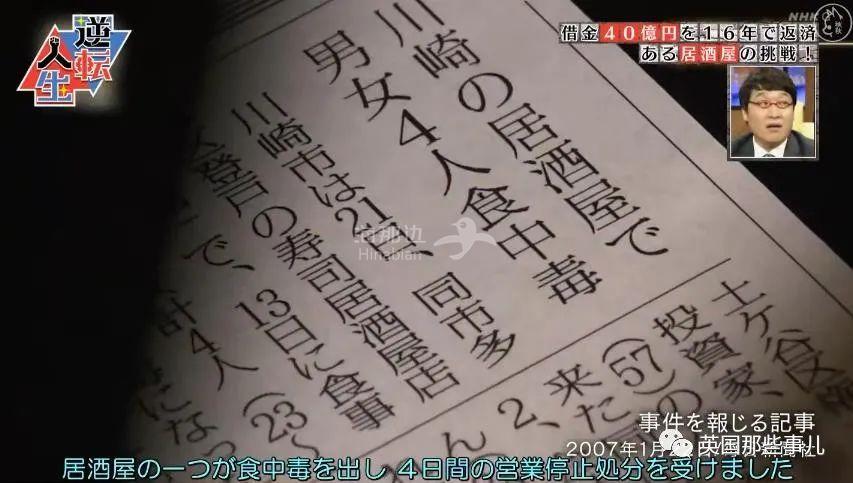 NHK
逆転人生
借金40億円を16年で返済
ある居酒屋の挑戦！
川崎の居酒屋で
男女4人食中毒
川崎市は21日、同市多
登戸の寿司居酒屋店
で、13日に食事
計4人(23〜
にな
土ヶ谷区
投資家、
(57)の
来た
2、
ん
海那边
Hinabian
事件を報じる記事
2007年1月2
新聞社
英国那些事儿
居酒屋の一つが食中毒を出し 4日間の営業停止処分を受けました